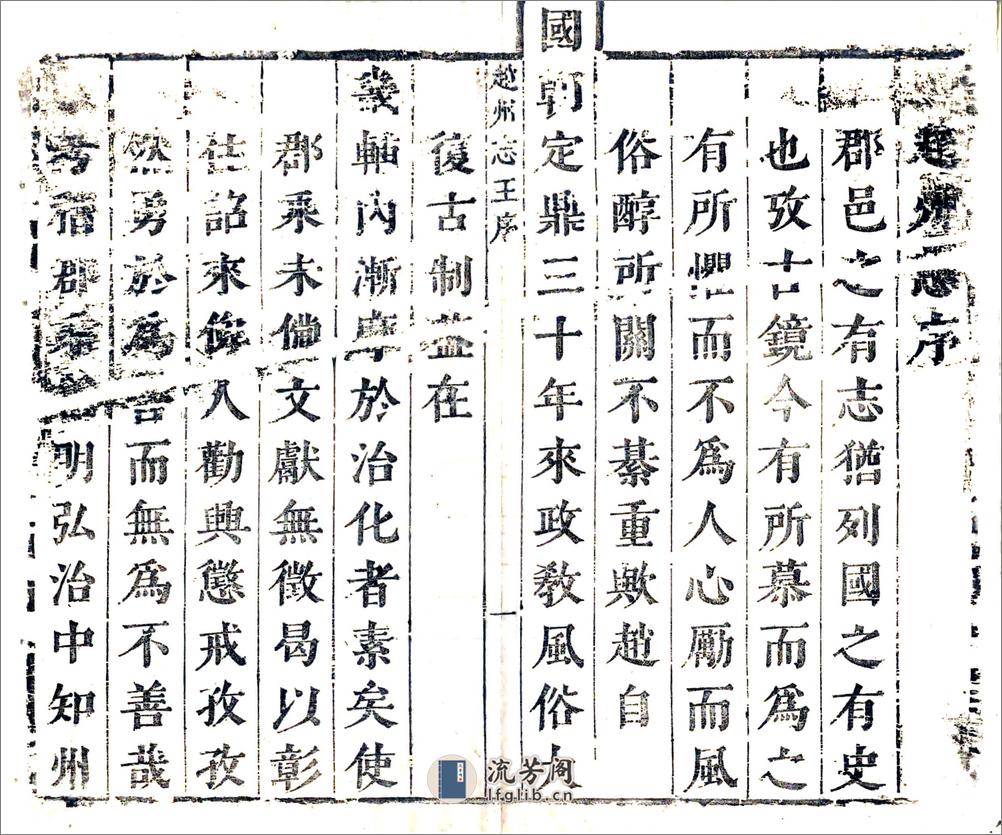 趙州志序
郡邑之有志猶列國之有史
也攷古鏡今有所慕而為之
有所懼而不為人心勵而風
俗醇所關不綦重歟趙自
國朝定鼎三十年來政教風俗大
趙州志王序
一
復古制蓋在
畿輔內漸摩於治化者素矣使
郡乘未備文獻無徵曷以彰
往詔來俾人勸興懲戒孜孜
然勇於為善而無為不善哉
考舊郡乘 明弘治中知州
流芳阁
lfglib.cn